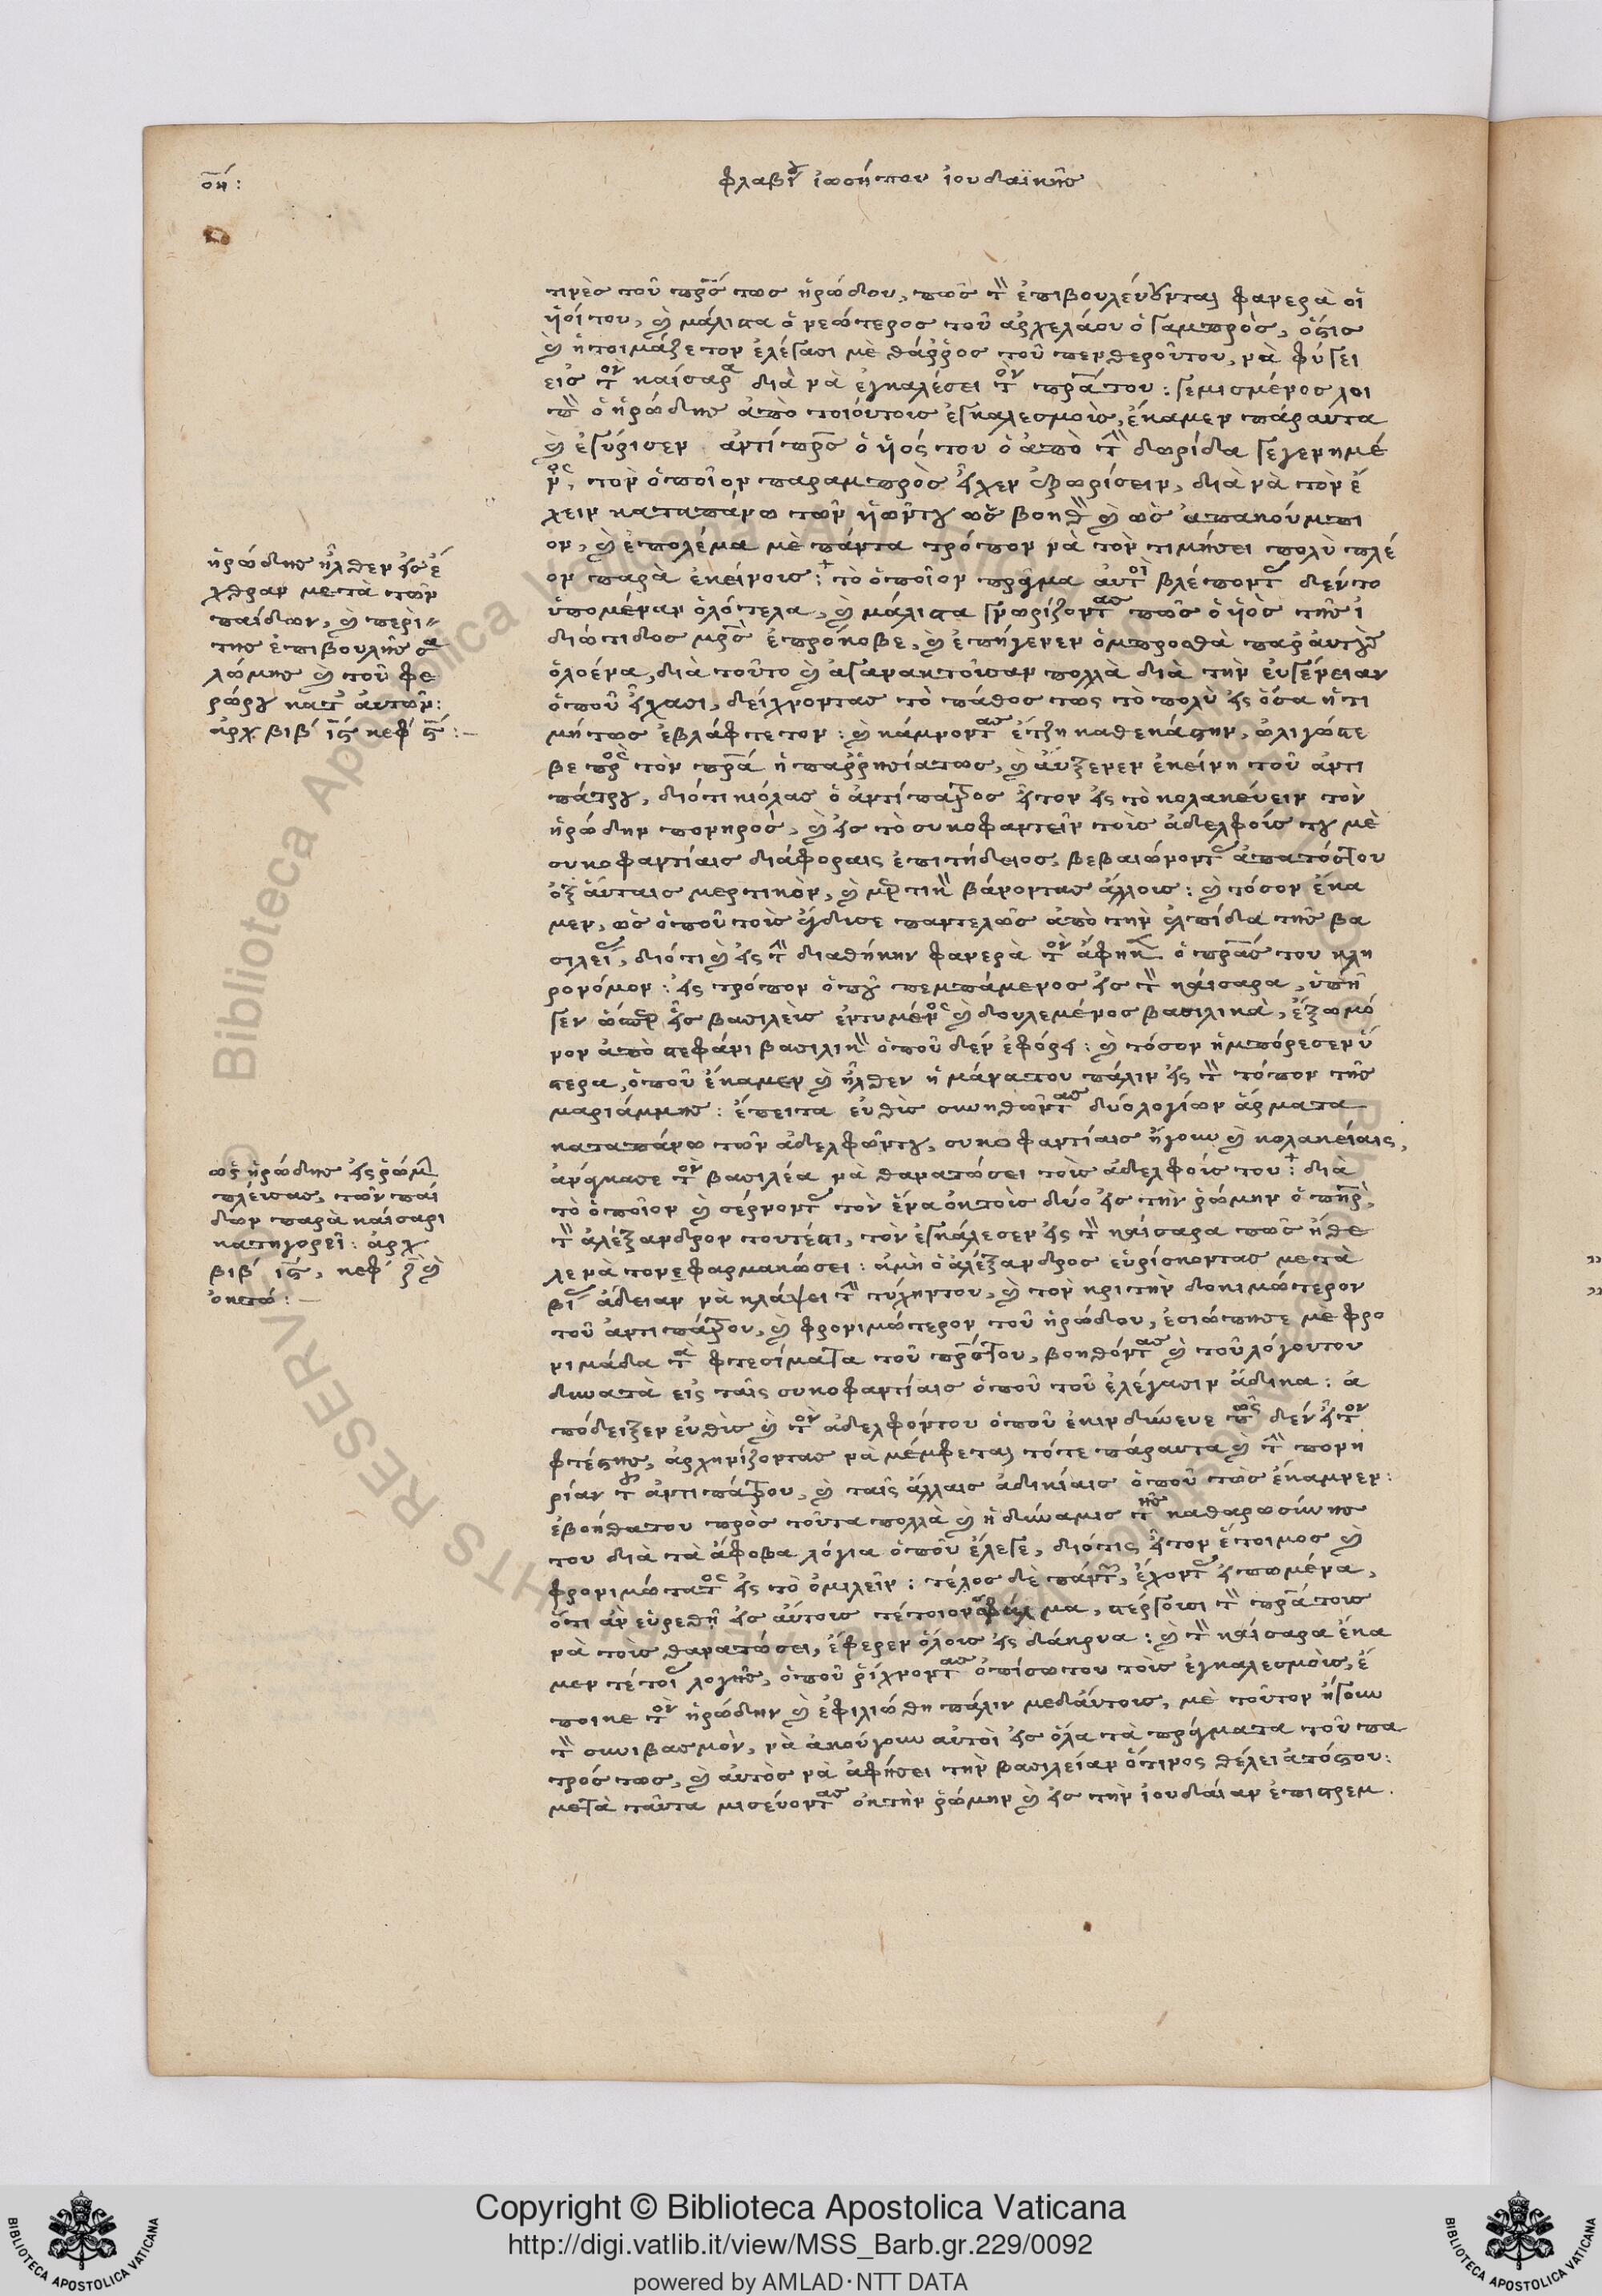 οη:
φλαβίου ἰωσήπου ἰουδαϊκῆς
τινὲς τοῦ πρς τως ἡρώδου, πῶς τὸν ἐπιβουλεύουνται φανερὰ οἱ
ἡοί του, καὶ μάλιστα ὁ νεώτερος τοῦ ἀρχελάου ὁ γαμπρὸς, ὅστις
καὶ ἡτοιμάζετον ἐλέγασι μὲ θάῤῥος τοῦ πενθεροῦτου, νὰ φύγει
εἰς τὸν καίσαρα διὰ νὰ ἐγκαλέσει τὸν πρατου: γεμισμένος λοι
πὸν ὁ ἡρώδης ἀπὸ τοιούτοις ἐγκαλεσμοὶς, ἔκαμεν πάραυτα
καὶ ἐγύρισεν ἀντίπρς ὁ ἡός του ὁ ἀπὸ τὴν δωρίδα γεγενημέ
νος, τὸν ὁποῖον παραμπρὸς εἶχεν ἐξωρίσειν, διὰ νὰ τὸν ἔ
χειν καταπάνω τῶν ἡῶντου ὡς βοηθὸν καὶ ὡς ἀπακούμπι
ον, καὶ ἐπολέμα μὲ πάντα τρόπον νὰ τὸν τιμήσει πολὺ πλέ
ον παρὰ ἐκείνοις: τὸ ὁποῖον πρᾶγμα αὐτοὶ βλέποντας δέν το
ὑπομέναν ὁλότελα, καὶ μάλιστα γνωρίζοντας πῶς ὁ ἡὸς τῆς ἰ
διώτιδος μρς ἐπρόκοβε, καὶ ἐπήγενεν ὀμπροσθὰ παρ' αὐτοὺς
ὁλοένα, διὰ τοῦτο καὶ ἀγανακτοῦσαν πολλὰ διὰ τὴν εὐγένειαν
ὁποῦ εἶχασι, δείχνοντας τὸ πάθος τως τὸ πολὺ εἰς ὅσα ἡ τι
μή τως ἐβλάφτετον: καὶ κάμνοντας ἔτζη καθεκάστην, ὠλιγώστε
βε πρὸς τὸν πρα ἡ παῤῥησία τως, καὶ αὔξενεν ἐκείνη τοῦ ἀντι
πάτρου, διότι κιόλας ὁ ἀντίπατρος ἦτον εἰς τὸ κολακεύειν τὸν
ἡρώδην πονηρός, καὶ εἰς τὸ συκοφαντεῖν τοὶς ἀδελφοίς του μὲ
συκοφαντίαις διάφοραις ἐπιτήδειος, βεβαιώνοντας ἀπατόςτου
ἐξ αὐταις μερτικὸν, καὶ μερτικὸν βάνοντας ἄλλοις: καὶ τόσον ἔκα
μεν, ὡς ὁποῦ τοὶς ἤγδισε παντελῶς ἀπὸ τὴν ἐλπίδα τῆς βα
σιλείας, διότι καὶ εἰς τὴν διαθήκην φανερὰ τὸν ἄφηκεν ὁ πρας του κλη
ρονόμον: εἰς τρόπον ὁποῦ πεμπάμενος εἰς τὸν καίσαρα, ὑπῆ
γεν ὥσπερ εἷς βασιλεὺς ἐντυμένος καὶ δουλεμένος βασιλικὰ, ἔξω μό
νον ἀπὸ στεφάνι βασιλικὸν ὁποῦ δέν ἐφόρει: καὶ τόσον ἠμπόρεσεν ὕ
στερα, ὁποῦ ἔκαμεν καὶ ἦλθεν ἡ μάνατου πάλιν εἰς τὸν τόπον τῆς
μαριάμμης: ἔπειτα εὐθὶς συνηθῶντας δύολογίων ἄρματα
καταπάνω τῶν ἀδελφῶντου, συκοφαντίαις ἤγουν καὶ κολακείαις,
ἀνάγκασε τὸν βασιλέα νὰ θανατώσει τοὶς ἀδελφοίς του: διὰ
τὸ ὁποῖον καὶ σέρνοντας τὸν ἕνα ἐκ τοὶς δύο εἰς τὴν ῥώμην ὁ πηρ,
τὸν ἀλέξανδρον τουτέστι, τὸν ἐγκάλεσεν εἰς τὸν καίσαρα πῶς ἤθε
λε νὰ τονε φαρμακώσει: ἀμὴ ὁ ἀλέξανδρος εὑρίσκοντας μετὰ
βίας ἄδειαν νὰ κλάψει τὴν τύχηντου, καὶ τὸν κριτὴν δοκιμώτερον
τοῦ ἀντιπάτρου, καὶ φρονιμώτερον τοῦ ἡρώδου, ἐσιώπησε μὲ φρο
νιμάδα τὰ φτεσίματα τοῦ πρςτου, βοηθόντας καὶ τοῦ λόγουτου
δυνατὰ εἰς ταῖς συκοφαντίαις ὁποῦ τοῦ ἐλέγασιν ἄδικα: ἀ
πόδειξεν εὐθὶς καὶ τὸν ἀδελφόντου ὁποῦ ἐκινδύνευε πῶς δέν εἶτον
φτέστης, ἀρχηνίζοντας νὰ μέμφεται τότε πάραυτα καὶ τὴν πονη
ρίαν τοῦ ἀντιπάτρου, καὶ ταῖς ἄλλαις ἀδικίαις ὁποῦ τῶς ἐκάμνεν:
ἐβοήθατου πρὸς τοῦτα πολλὰ καὶ ἡ δύναμις τῆς καθαρωσύνης
του διὰ τὰ ἄφοβα λόγια ὁποῦ ἔλεγε, διότις ἦτον ἕτοιμος καὶ
φρονιμώτατος εἰς τὸ ὁμιλεῖν: τέλος δὲ πάντων, ἔχοντας εἰπωμένα,
ὅτι ἀν εὑρεθῆ εἰς αὐτοις τέτοιον σφάλμα, στέργουσι τὸν πρα τοις
νὰ τοὶς θανατώσει, ἔφερεν ὅλοις εἰς δάκρυα: καὶ τὸν καίσαρα ἔκα
μεν τέτοιας λογῆς, ὁποῦ ῥίχνοντας ὀπίσωτου τοὶς ἐγκαλεσμοὶς, ἔ
ποικε τὸν ἡρώδην καὶ ἐφιλιώθη πάλιν μεδαύτοις, μὲ τοῦτον ἤγουν
τὸν συνιβασμὸν, νὰ ἀκούγουν αὐτοὶ εἰς ὅλα τὰ πράγματα τοῦ πα
τρός τως, καὶ αὐτὸς νὰ ἀφήσει τὴν βασιλείαν ὅτινος θέλει ἀπόςτου:
μετὰ ταῦτα μισεύοντας ἐκ τὴν ῥώμην καὶ εἰς τὴν ἰουδαίαν ἐπιστρεμ.
ἡρώδης ἦλθεν εἰς ἔ
χθραν μετὰ τῶν
παίδων, καὶ περὶ
της ἐπιβουλῆς σα
λώμης καὶ τοῦ φε
ρώρου κατ' αὐτῶν:
ἀρχ. βιβ ιϛ κεφ ϛ:
ὡς ἡρώδης εἰς ῥώμην
πλεύσας, τῶν παί
δων παρὰ καίσαρι
κατηγορεῖ: ἀρχ
βιβ ιϛ, κεφ ζ καὶ
ὀκτώ:
Copyright © Biblioteca Apostolica Vaticana
http://digi.vatlib.it/view/MSS_Barb.gr.229/0092
powered by AMLAD·NTT DATA
BIBLIOTECA APOSTOLICA VATICANA
BIBLIOTECA APOSTOLICA VATICANA